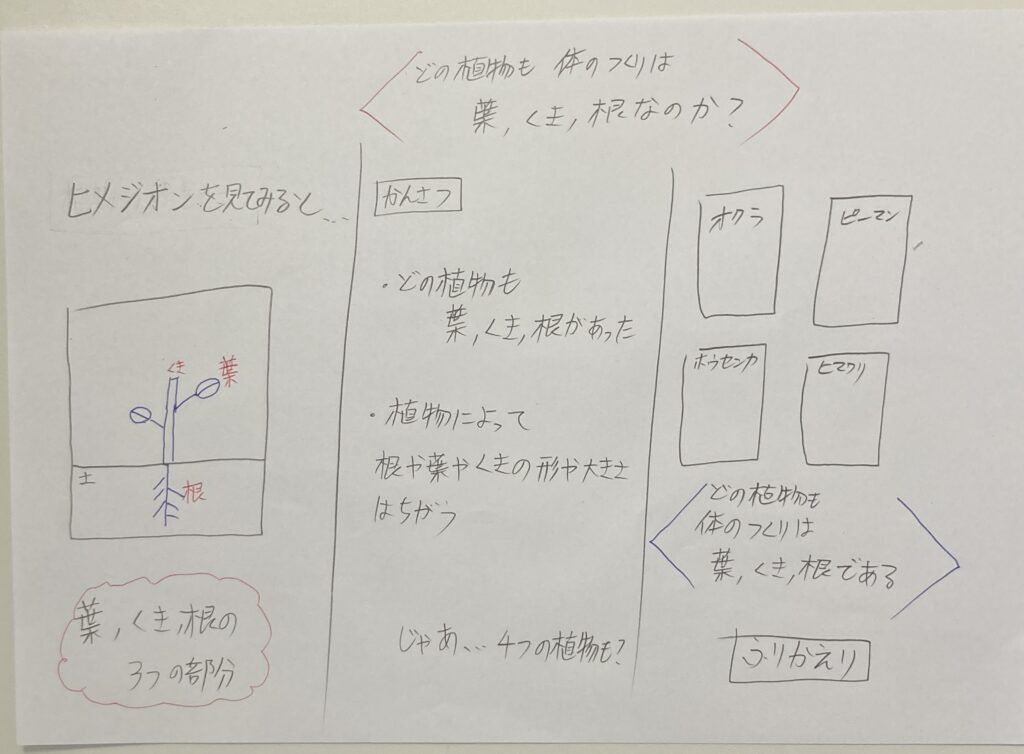 どの植物も 体のつくりは
葉,くき,根なのか?
ヒメジオンを見てみると...
くき
葉
土
根
葉,くき,根の
3つの部分
かんさつ
・どの植物も
葉,くき,根があった
・植物によって
根や葉やくきの形や大きさ
はちがう
じゃあ... 4つの植物も?
オクラ
ピーマン
ホウセンカ
ヒマワリ
どの植物も
体のつくりは
葉,くき,根である
ふりかえり